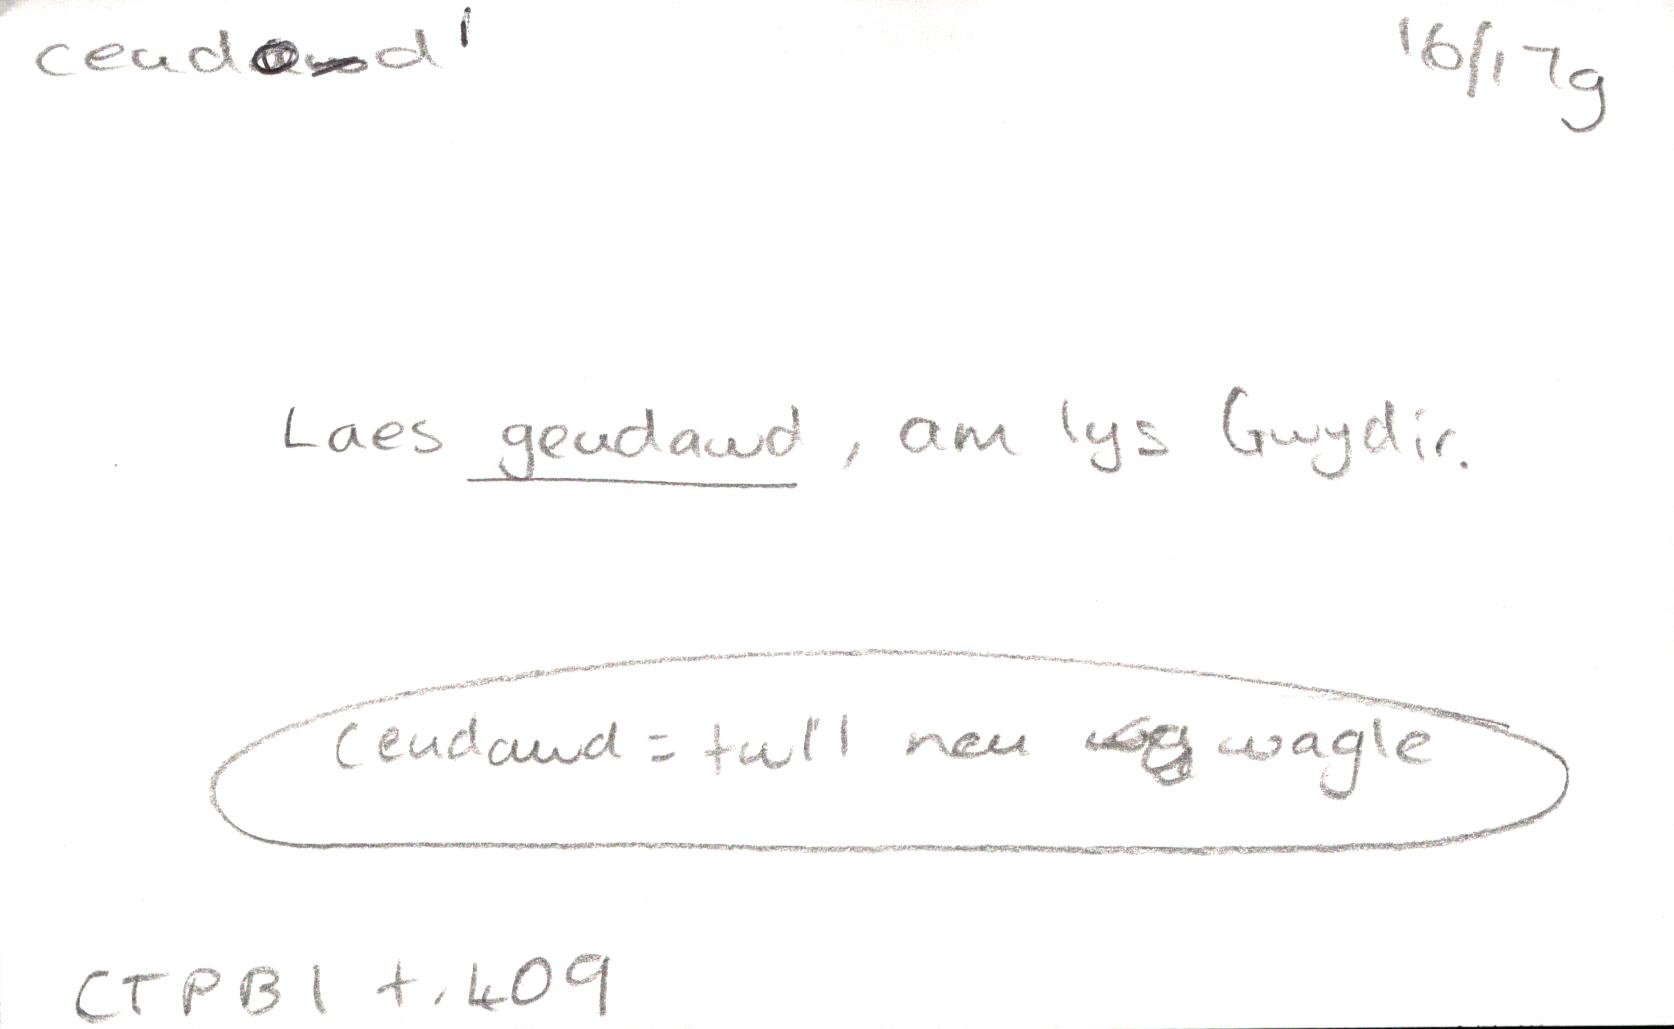 ceudod¹ 16/17g
Laes geudawd, am lys Gwydir.
Ceudawd = twll neu wagle
CTPB 1 t. 409